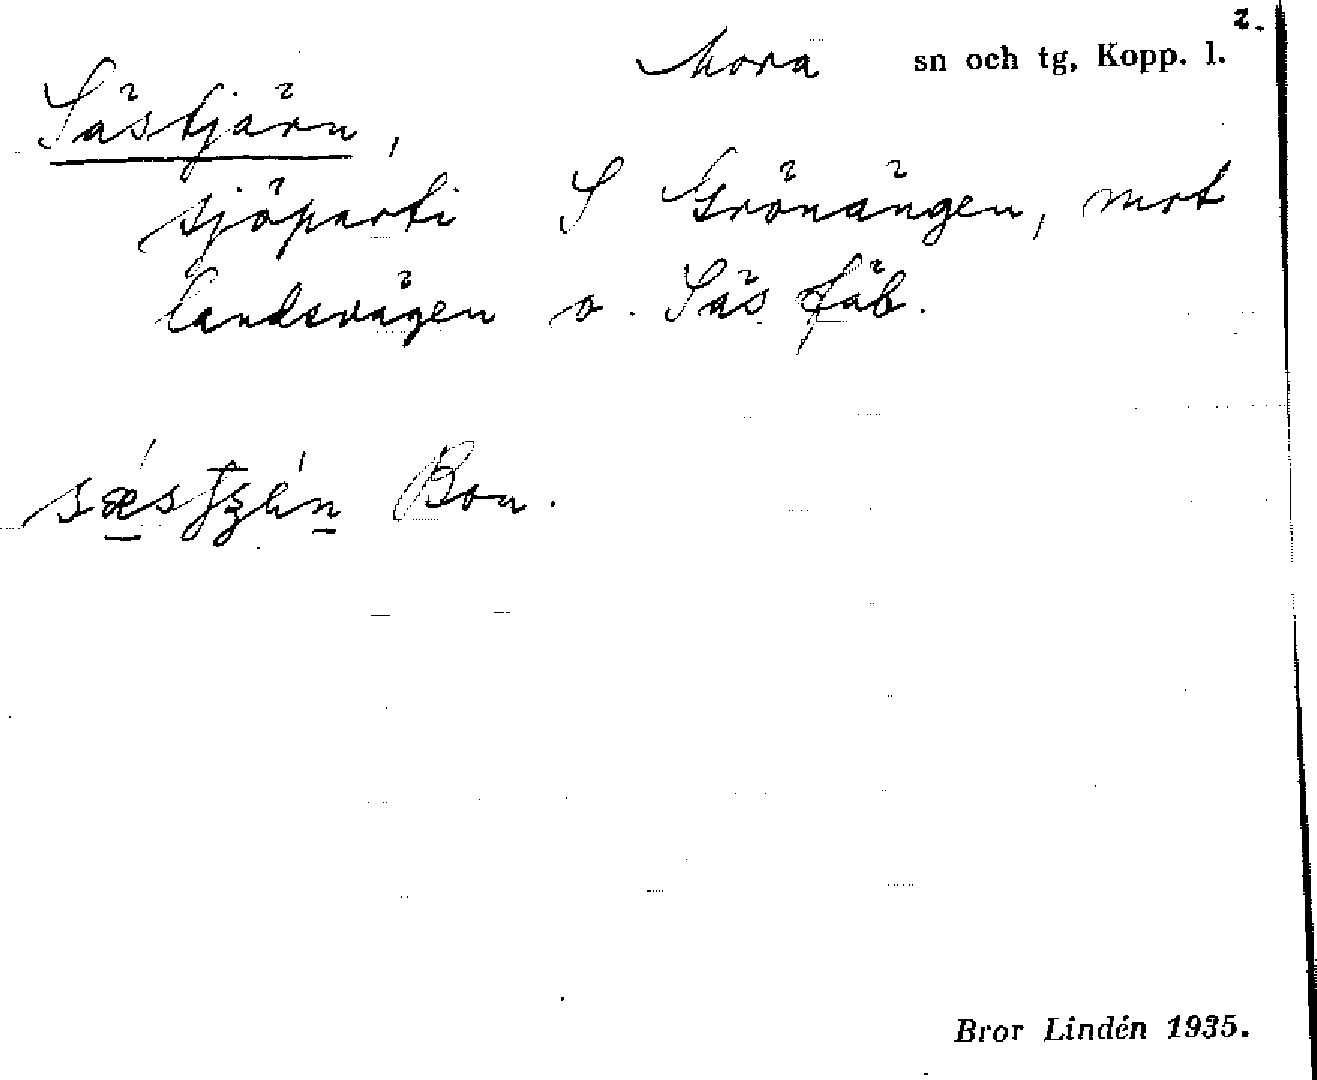 2.
Mora sn och tg, Kopp. l.
Sästjärn,
sjöparti S Grönängen, mot
landsvägen o. Säs fäb.
Bon.
Bror Lindén 1935.